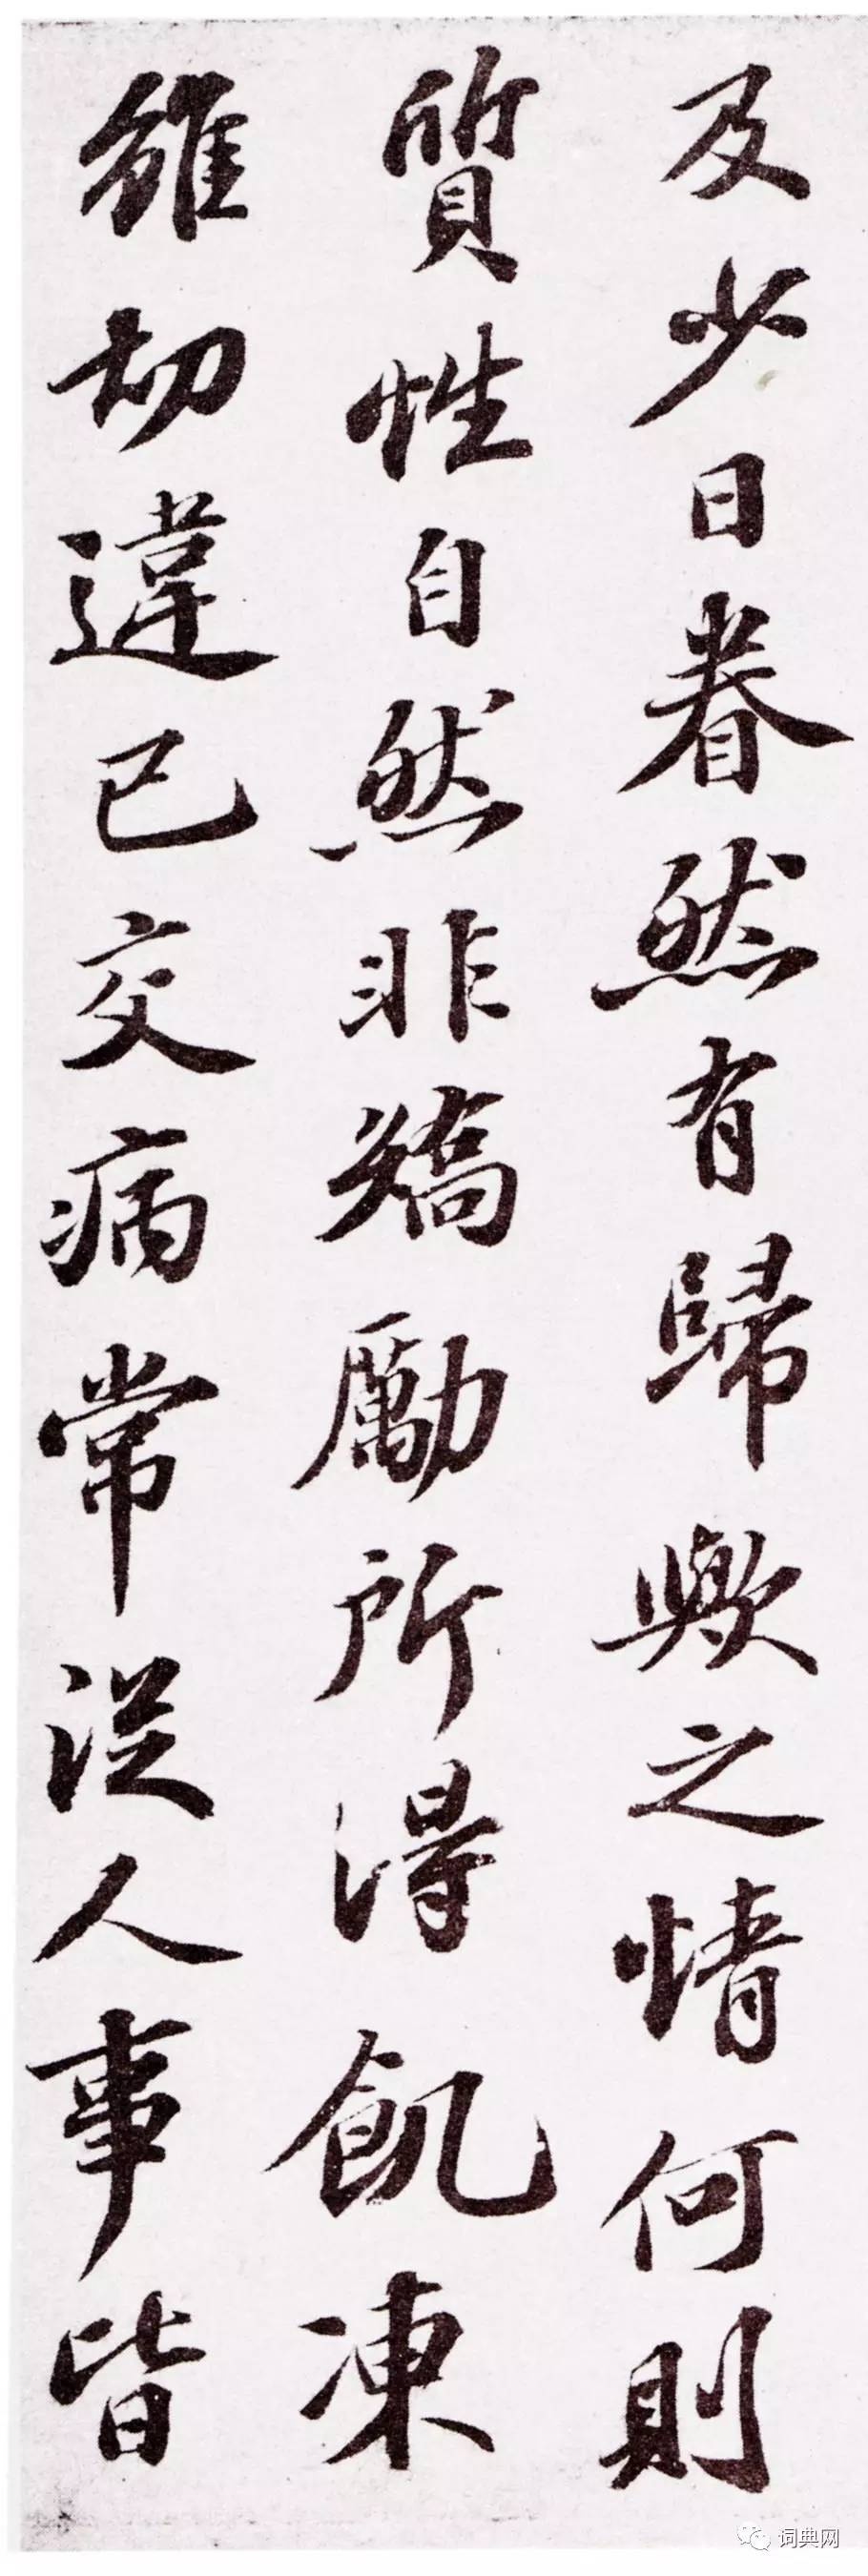 及少日眷然有歸歟之情何則
質性自然非矯勵所得飢凍
雖切違已交病常從人事皆
词典网